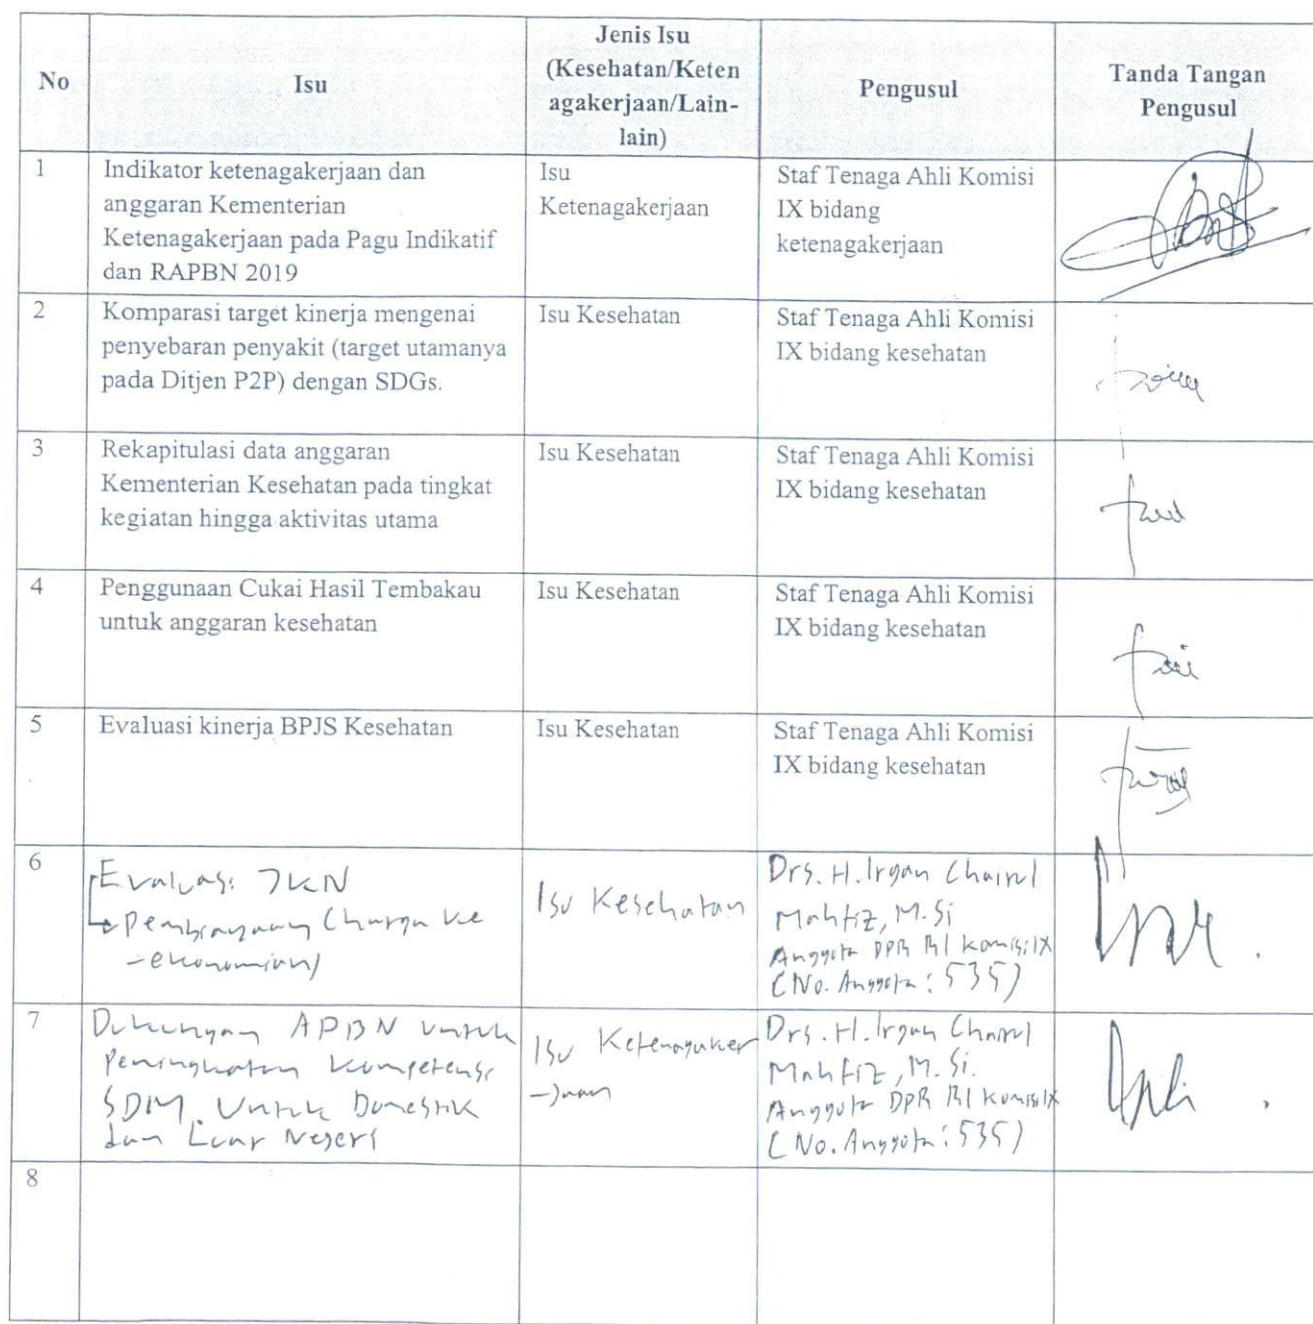 No
Isu
Jenis Isu
(Kesehatan/Keten
agakerjaan/Lain-
lain)
Pengusul
Tanda Tangan
Pengusul
1
Indikator ketenagakerjaan dan
anggaran Kementerian
Ketenagakerjaan pada Pagu Indikatif
dan RAPBN 2019
Isu
Ketenagakerjaan
Staf Tenaga Ahli Komisi
IX bidang
ketenagakerjaan
2
Komparasi target kinerja mengenai
penyebaran penyakit (target utamanya
pada Ditjen P2P) dengan SDGs.
Isu Kesehatan
Staf Tenaga Ahli Komisi
IX bidang kesehatan
3
Rekapitulasi data anggaran
Kementerian Kesehatan pada tingkat
kegiatan hingga aktivitas utama
Isu Kesehatan
Staf Tenaga Ahli Komisi
IX bidang kesehatan
4
Penggunaan Cukai Hasil Tembakau
untuk anggaran kesehatan
Isu Kesehatan
Staf Tenaga Ahli Komisi
IX bidang kesehatan
5
Evaluasi kinerja BPJS Kesehatan
Isu Kesehatan
Staf Tenaga Ahli Komisi
IX bidang kesehatan
6
Evaluasi JKN
Pembiayaan (harga ke
-ekonomian)
Isu Kesehatan
Drs. H. Irgan Chairul
Mahfiz, M.Si
Anggota DPR RI Komisi IX
(No. Anggota: 535)
7
Dukungan APBN untuk
Peningkatan Kompetensi
SDM. Untuk Domestik
dan Luar Negeri
Isu Ketenagaker
-jaan
Drs. H. Irgan Chairul
Mahfiz, M.Si.
Anggota DPR RI Komisi IX
(No. Anggota: 535)
8